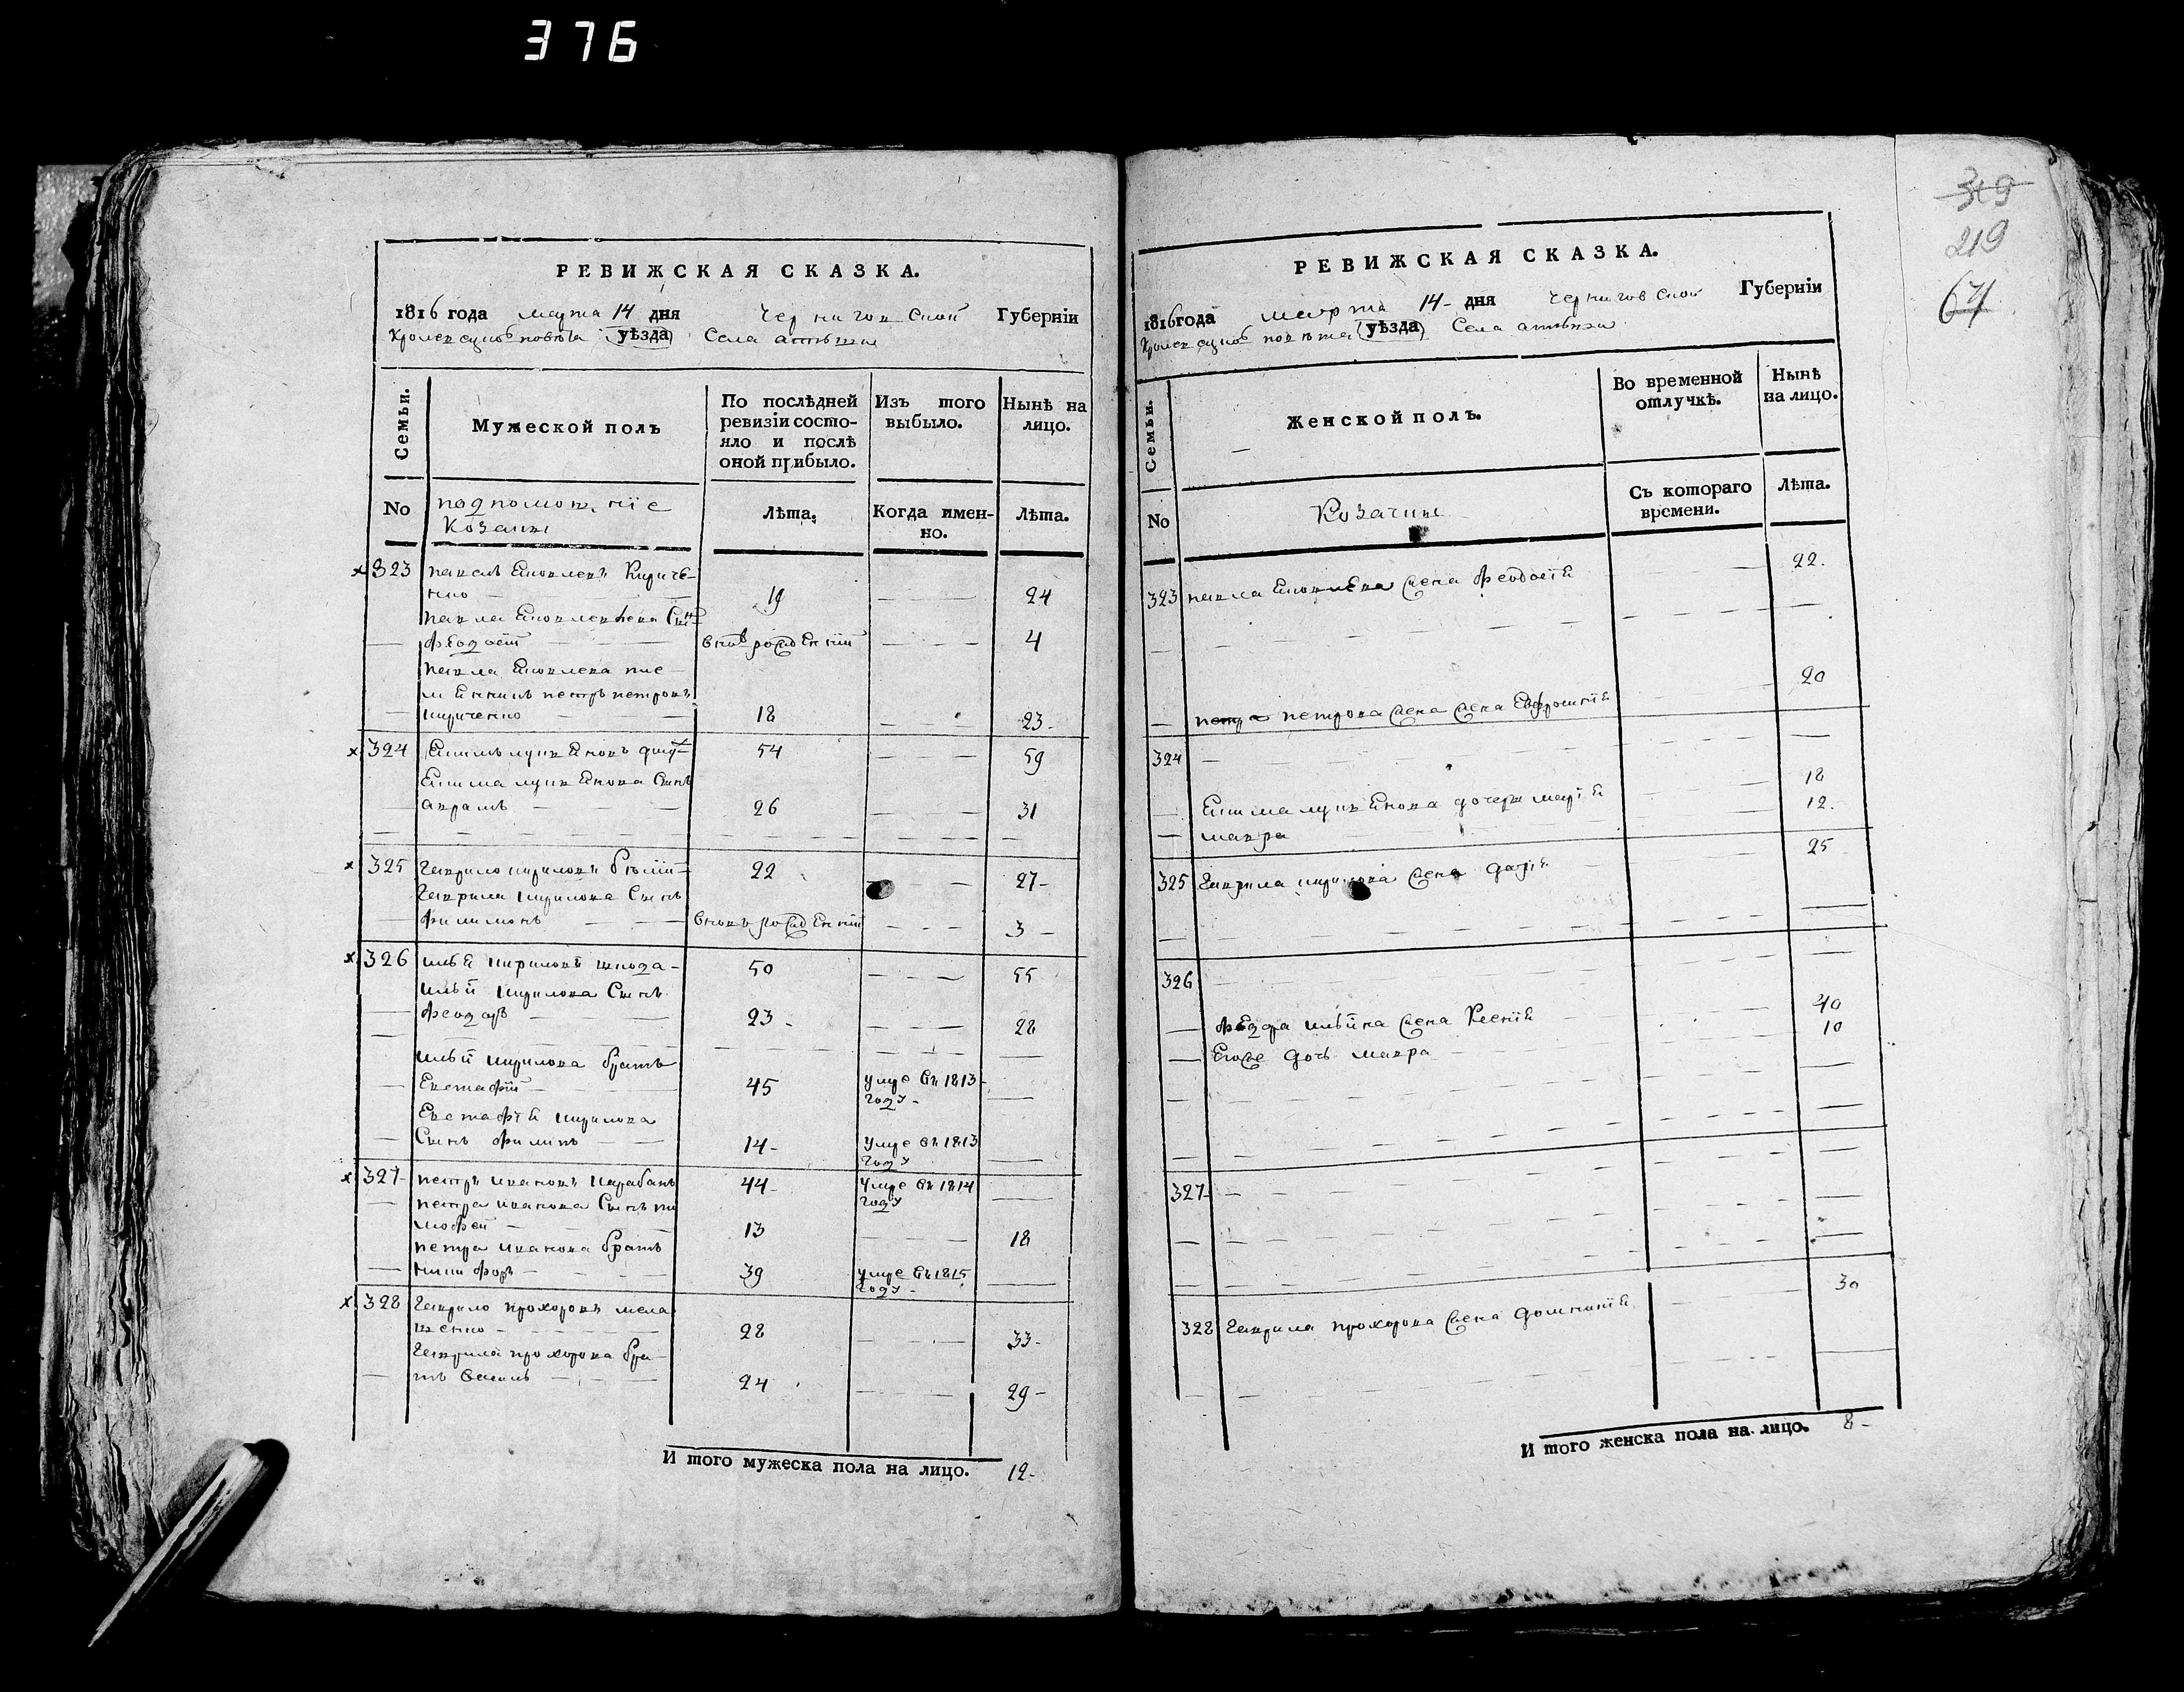 376
РЕВИЖСКАЯ СКАЗКА.
1816 года марта 14 дня Черниговской Губерніи
уѣзда Села
Семьи.
Мужеской полъ
По послѣдней
ревизіи состо-
яло и послѣ
оной прибыло.
Изъ того
выбыло.
Нынѣ на
лицо.
No
Козаки
Лѣта.
Когда имен-
но.
Лѣта.
323 павелъ Кириче-
нко 19 24
павла Сынъ
феодосій 4
павла пле-
петръ петровъ
кириченко 18 23
324 54 59
Сынъ
авраамъ 26 31
325 Гаврило кириловъ 22 27
Гаврила кирилова Сынъ
филимонъ 3
326 илья кириловъ шкода 50 55
ильи кирилова Сынъ
феодоръ 23 28
ильи кирилова братъ
Евстафій 45 умре въ 1813
году
Евстафія кирилова
Сынъ филипъ 14 умре въ 1813
году
327 петръ ивановъ карабанъ 44 умре въ 1814
году
петра иванова Сынъ ти
мофей 13 18
петра иванова братъ
никифоръ 39 умре въ 1815
году
328 Гаврило прохоровъ мела
шенко 28 33
Гаврила прохорова бра-
тъ василь 24 29
И того мужеска пола на лицо. 12
319
219
67
РЕВИЖСКАЯ СКАЗКА.
1816 года марта 14 дня Черниговской Губерніи
повѣта (уѣзда) Села
Семьи.
Женской полъ.
Во временной
отлучкѣ.
Нынѣ
на лицо.
No
Козачки
Съ котораго
времени.
Лѣта.
323 павла жена феодосія 22
петрова жена Евфросинія 20
324
дочери марія 18
мавра 12
325 Гаврила кирилова жена дарія 25
326
феодора ильина жена Ксенія 40
Его же дочь мавра 10
327
328 Гаврила прохорова жена домникія 30
И того женска пола на лицо. 8